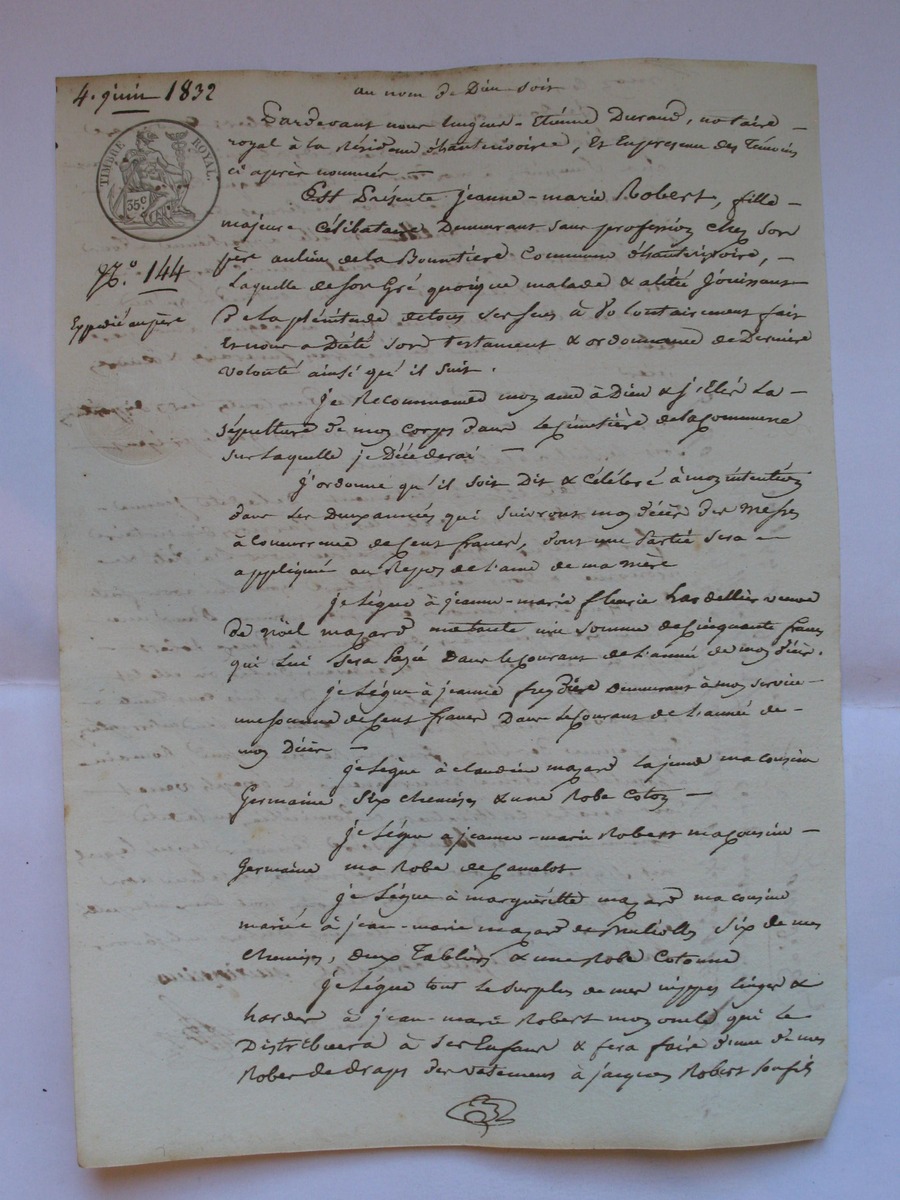 4. juin 1832
au nom de Dieu soit
TIMBRE ROYAL.
35c
Pardevant nous hugues-Etienne Durand, notaire
royal à la Résidence d'hauterivoire, Et En presence des Témoins
ci après nommés —
Est Présente jeanne-marie Robert, fille
majeure Célibataire Demeurant sans profession chez son
père au lieu de la Commune d'hauterivoire, —
N.o 144
Laquelle de son Gré quoique malade & alitée Jouissant
Expédié au père
De la plénitude de tous ses sens à Volontairement fait
Et nous a Dicté son testament & ordonnance de Dernière
volonté ainsi qu'il suit.
je Recommande mon ame à Dieu & j'Elis La
Sépulture de mon Corps dans le Cimetière de la Commune
sur Laquelle je Décèderai —
J'ordonne qu'il soit Dit & Célébré à mon intention
dans les Deux années qui suivront mon décès des Messes
à Concurrence de Cent francs, dont une Partie sera
appliquée au Repos de L'ame de ma Mère
je Lègue à jeanne-marie veuve
de noël mazard ma tante une somme de Cinquante francs
qui Lui sera Payé Dans le Courant de L'année de mon décès.
je Lègue à jeanne Demeurant à mon service
une somme de Cent francs Dans le Courant de L'année de
mon Décès —
je Lègue à claudine mazard La jeune ma cousine
Germaine six chemises & une Robe Coton —
je Lègue à jeanne-marie Robert ma Cousine
Germaine ma Robe de Camelot
je Lègue à margueritte mazard ma cousine
mariée à jean-marie mazard de six de mes
chemises, deux Tabliers & une Robe Cotonne
je Lègue tout le surplus de mes nippes linges &
hardes à jean-marie Robert mon oncle qui Le
Distribuera à ses Enfans & fera faire d'une de mes
Robes de draps des vetemens à jacques Robert son fils